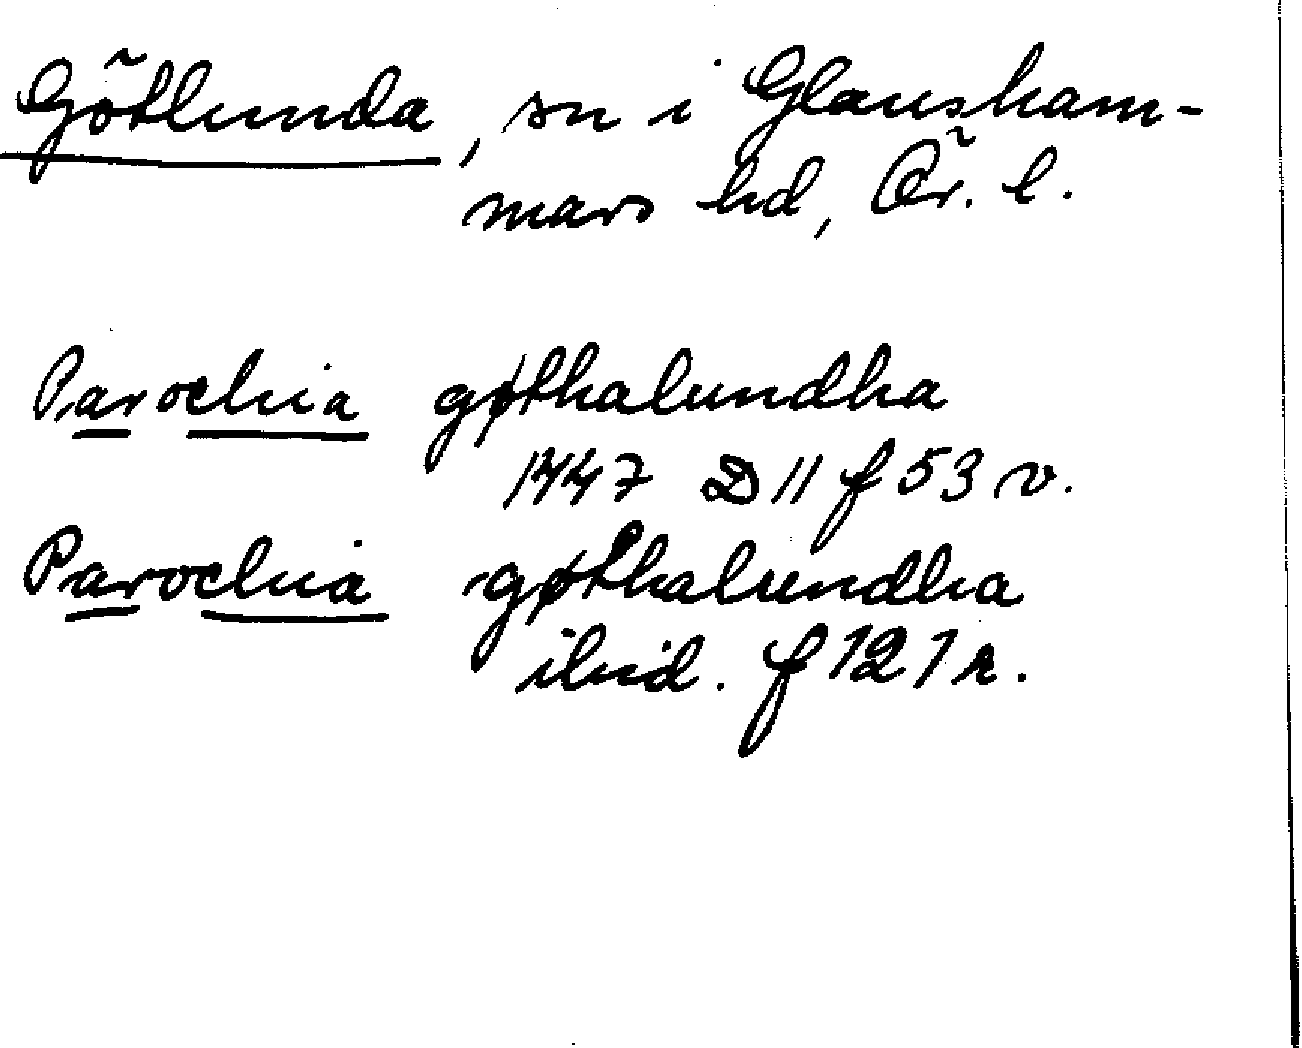 Götlunda, sn i Glansham-
mars hd, Ör. l.
Parochia gøthalundha
1447 D 11 f 53 v.
Parochia gøthalundha
ibid. f 121 r.